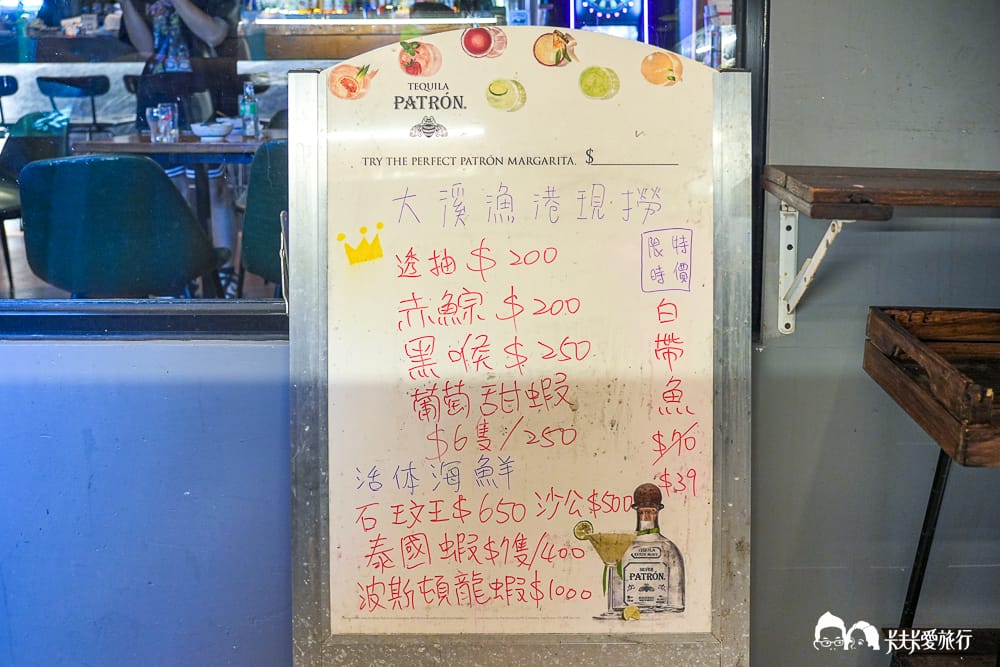 TEQUILA
PATRÓN.
TRY THE PERFECT PATRÓN MARGARITA. $
大溪漁港現撈
透抽 $200
赤鯮 $200
黑喉 $250
葡萄甜蝦
$6隻/250
限時
時價
白帶魚
$70
$39
活体海鮮
石蚊王$650 沙公$500
泰國蝦$7隻/400
波斯頓龍蝦$1000
TEQUILA
SILVER
PATRÓN.
卡卡愛旅行